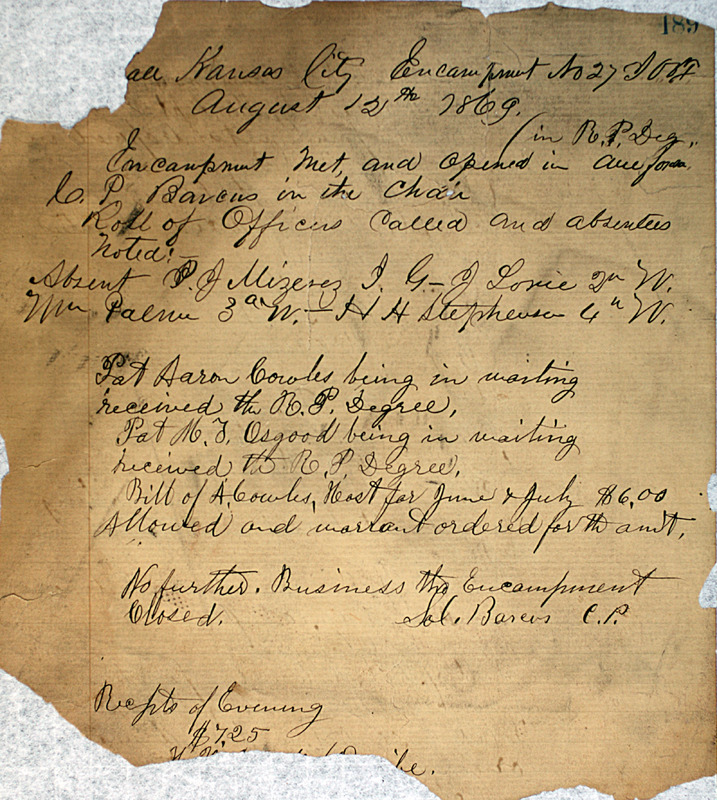 189
Hall Kansas City Encampment No 27 I.O.O.F
August 12th 1869.
(in R.P. Deg.,
Encampment Met, and opened in due form
C. P. Barcus in the Chair
Roll of Officers Called and absentees
Noted:
Absent P. J Mizerez I. G – J Lorie 2n W.
Wm Palmer 3d W. – H H Stephenson 4th W.
Pat Aaron Cowles being in waiting
received the R. P. Degree,
Pat M. F. Osgood being in waiting
received the R. P Degree.
Bill of A. Cowles, Host for June & July $6.00
Allowed and warrant ordered for th amt.
No further. Business the Encampment
Closed. Sol. Barcus C.P.
Recpts of Evening
$7.25